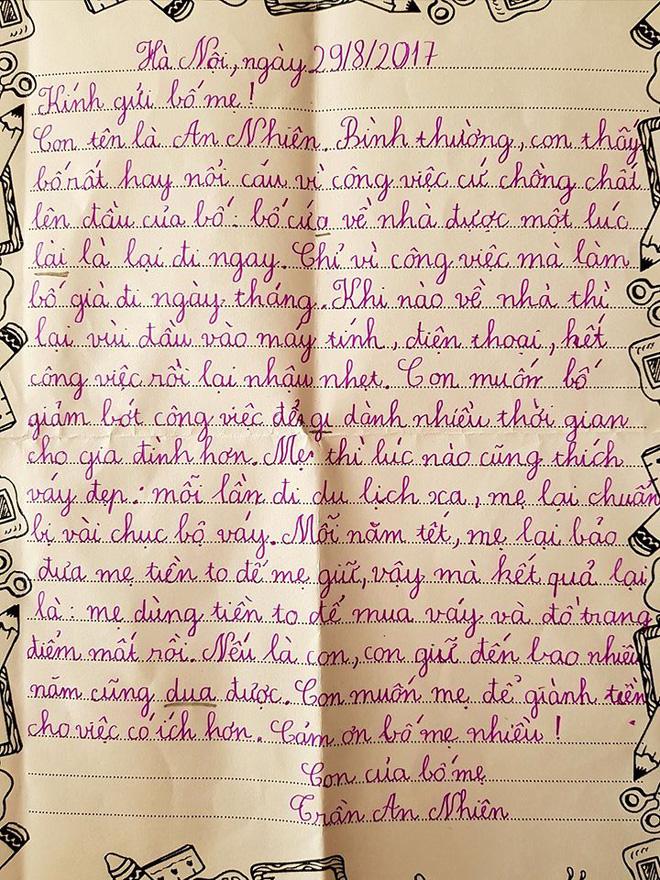 Hà Nội, ngày 29/8/2017
Kính gửi bố mẹ!
Con tên là An Nhiên. Bình thường, con thấy
bố rất hay nổi cáu vì công việc cứ chồng chất
lên đầu của bố: bố cứa về nhà được một lúc
lài là lại đi ngay. Chỉ vì công việc mà làm
bố già đi ngày tháng. Khi nào về nhà thì
lại vùi đầu vào máy tính, điện thoại, hết
công việc rồi lại nhậu nhẹt. Con muốn bố
giảm bớt công việc để gi dành nhiều thời gian
cho gia đình hơn. Mẹ thì lúc nào cũng thích
váy đẹp: mỗi lần đi du lịch xa, mẹ lại chuẩn
bị vài chục bộ váy. Mỗi năm tết, mẹ lại bảo
đưa mẹ tiền to để mẹ giữ, vậy mà kết quả lại
là: mẹ dùng tiền to để mua váy và đồ trang
điểm mất rồi. Nếu là con, con giữ đến bao nhiêu
năm cũng dua được. Con muốn mẹ để giành tiền
cho việc có ích hơn. Cảm ơn bố mẹ nhiều!
Con của bố mẹ
Trần An Nhiên